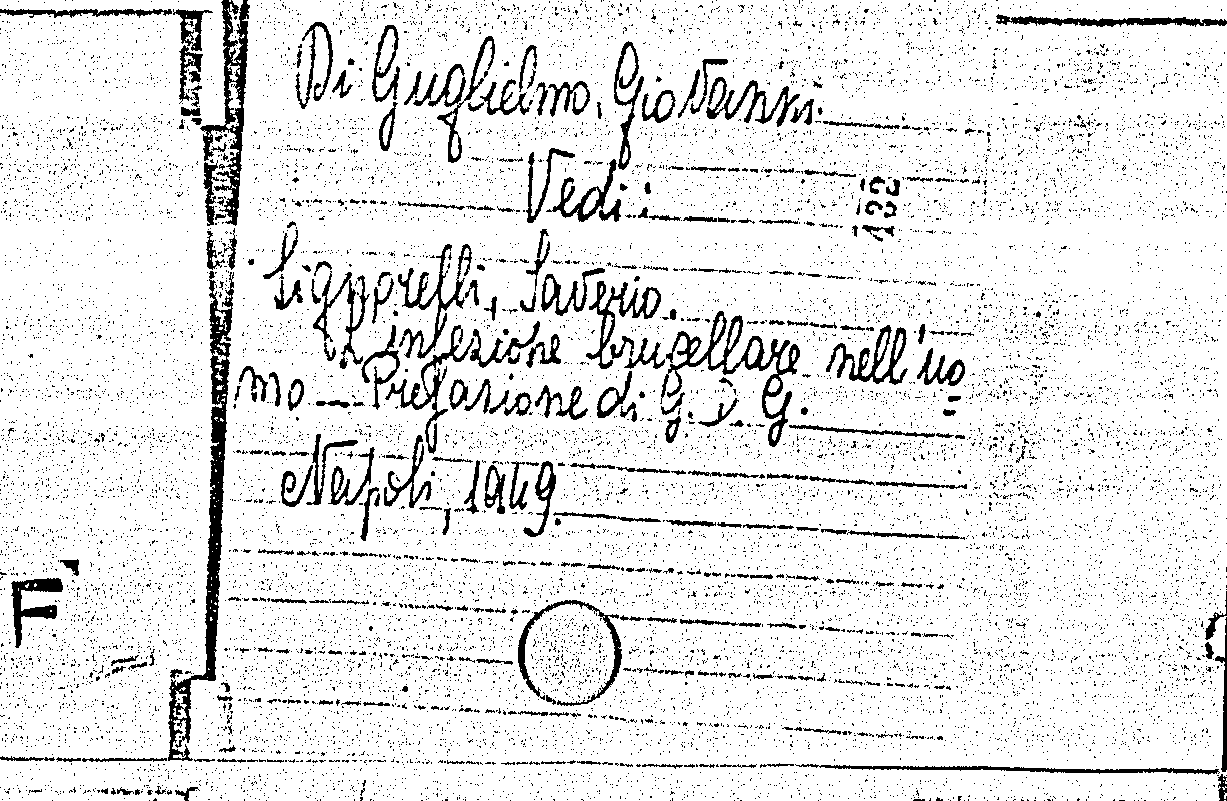 Di Guglielmo, Giovanni.
Vedi:
Signorelli, Saverio.
L'infezione brucellare nell'uo=
mo — Prefazione di G. D. G.
Napoli, 1949.
F